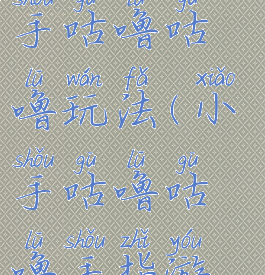 shǒu gū lū gū
手咕噜咕
lū wán fǎ xiǎo
噜玩法(小
shǒu gū lū gū
手咕噜咕
lū shǒu zhǐ yóu
噜手指游